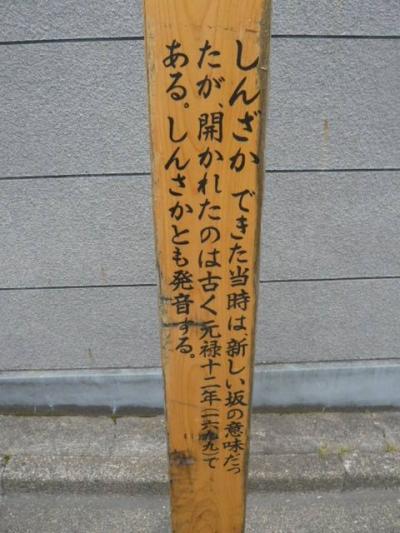 しんざか できた当時は、新しい坂の意味だっ
たが、開かれたのは古く元禄十二年(一六九九)で
ある。しんさかとも発音する。